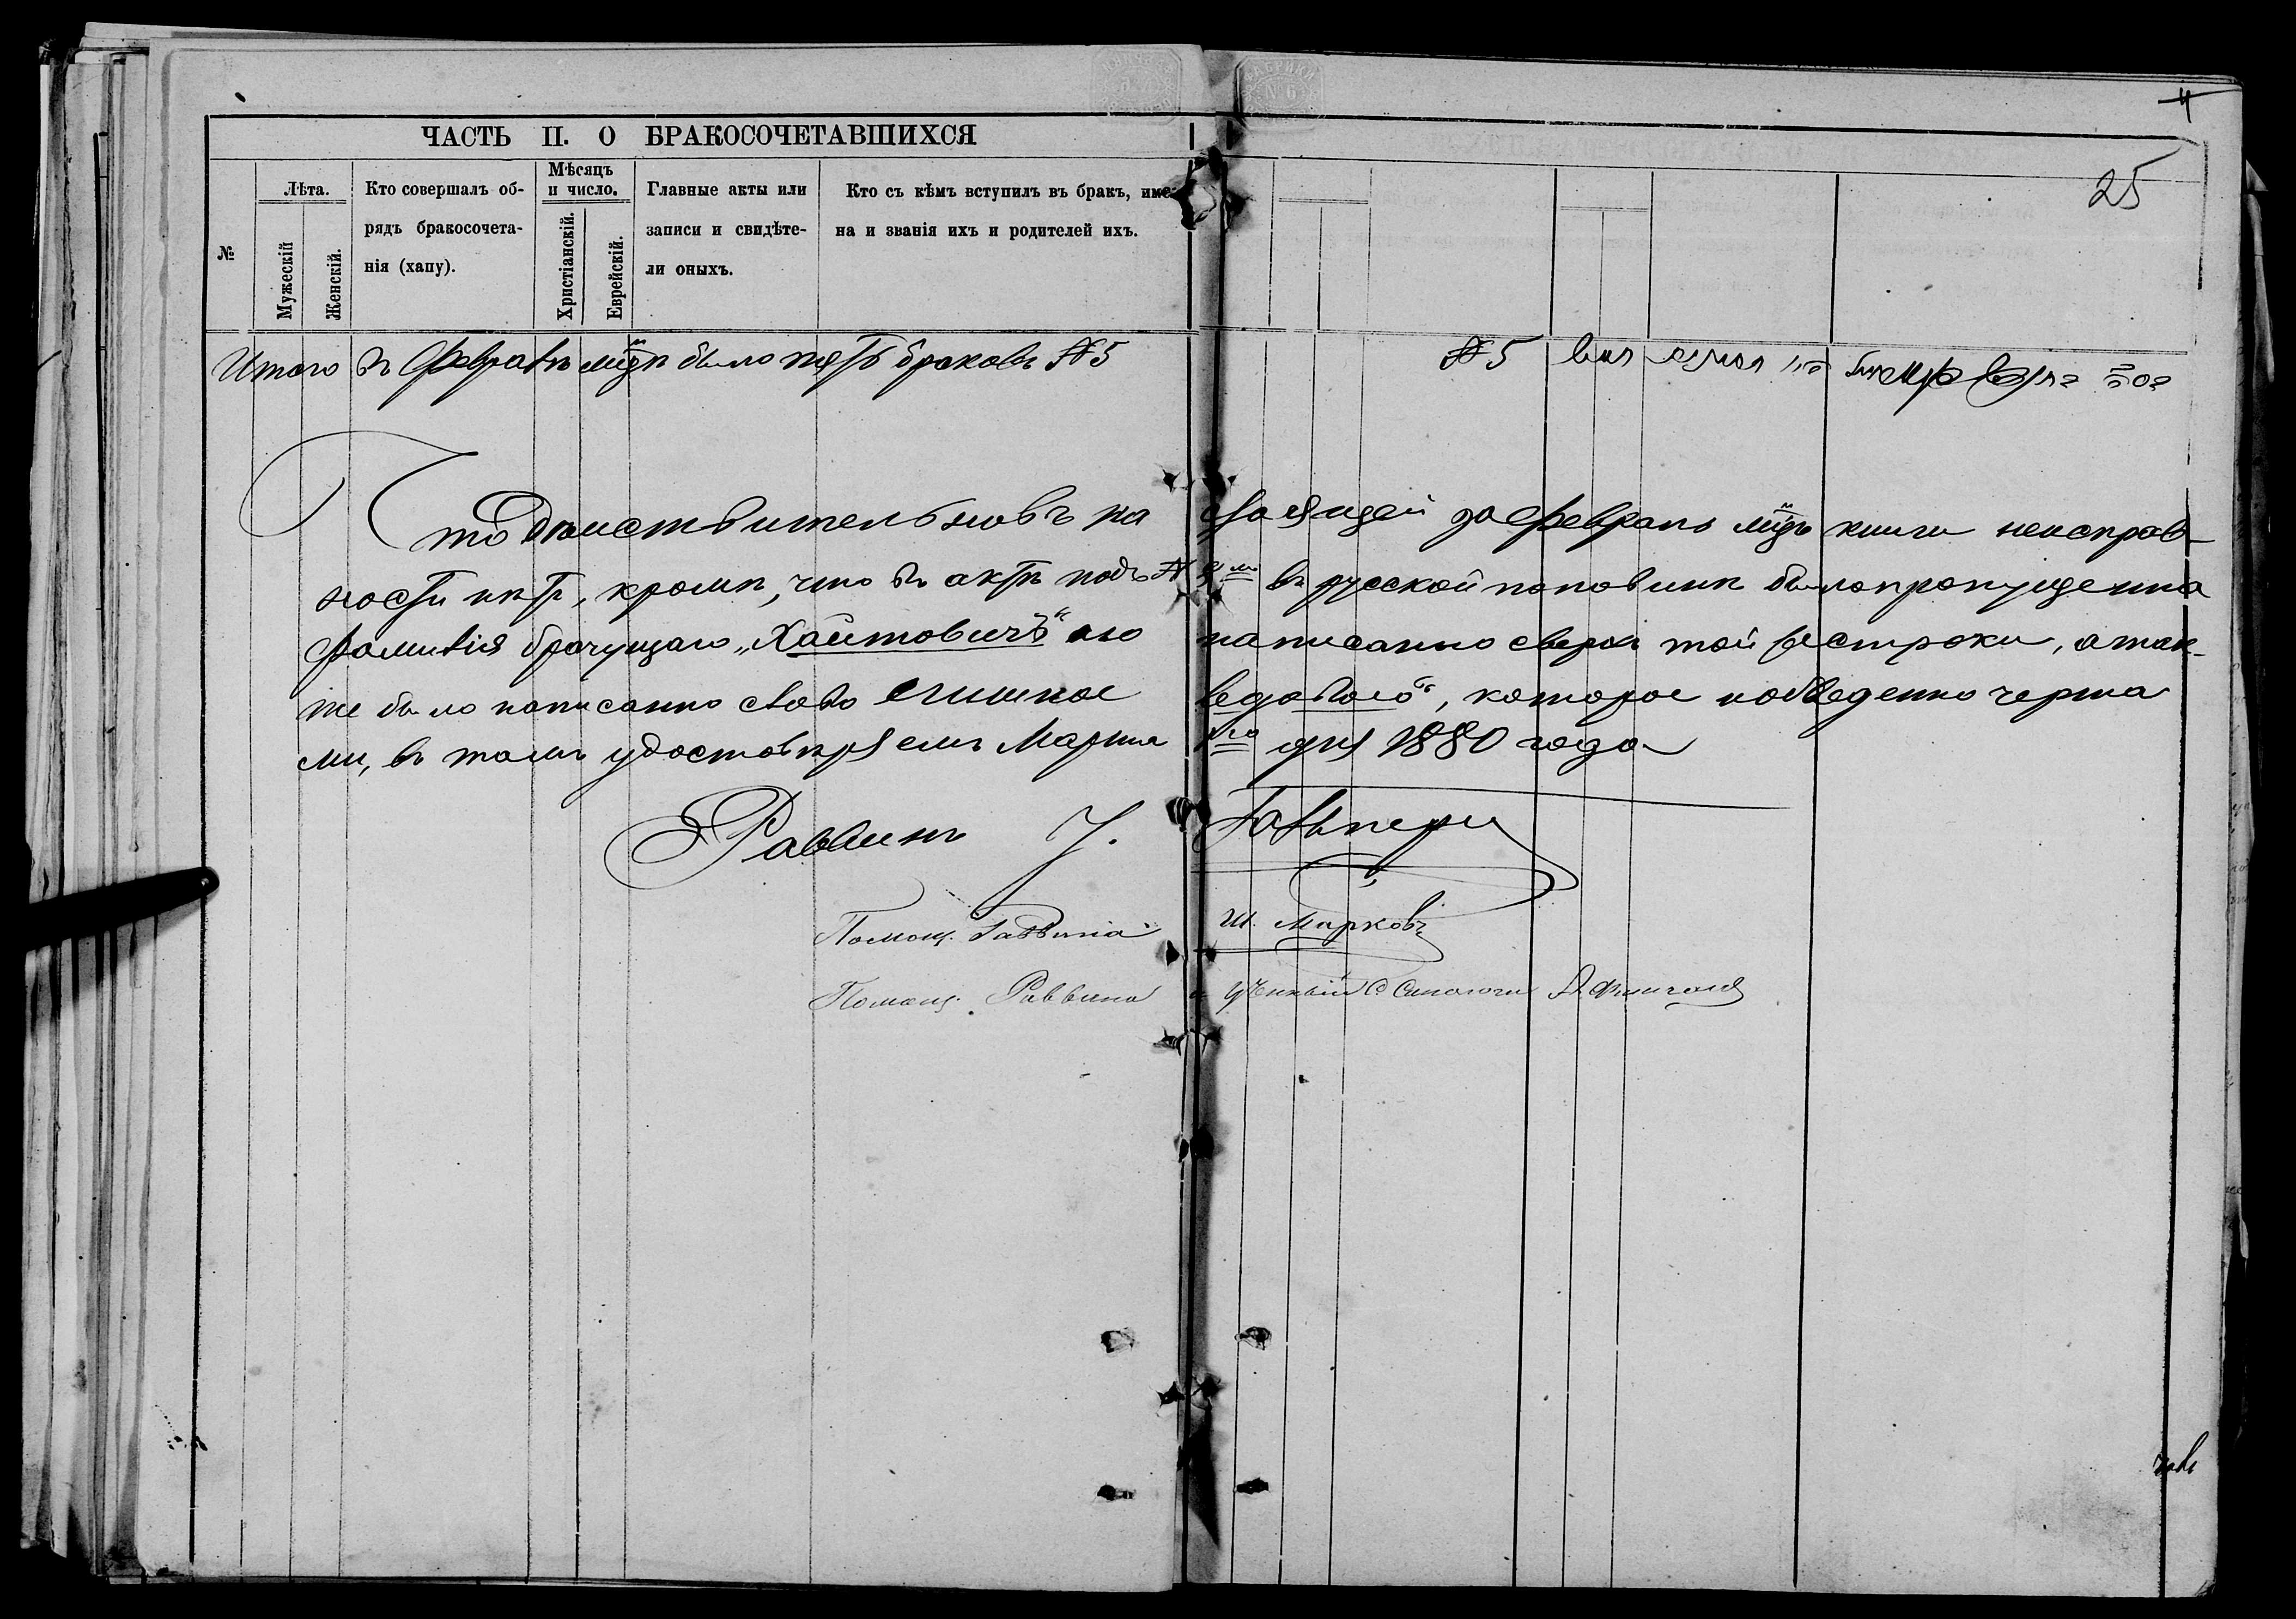 4
25
ЧАСТЬ II. О БРАКОСОЧЕТАВШИХСЯ
№
Лѣта.
Мужескій
Женскій.
Кто совершалъ об-
рядъ бракосочета-
нія (хапу).
Мѣсяцъ
и число.
Христіанскій.
Еврейскій.
Главные акты или
записи и свидѣте-
ли оныхъ.
Кто съ кѣмъ вступилъ въ бракъ, име-
на и званія ихъ и родителей ихъ.
Итого въ Февралѣ мцѣ было пять браковъ № 5
№ 5
Что дѣиствительно въ настоящей за Февраль мцъ книги неисправ-
ности нѣтъ, кромѣ, что въ актѣ подъ № въ русской половинѣ было пропущенна
фамилія брачущаго „Хаитовичъ" а написанно сверхъ той строки, а так-
же было написанно слово лишное которое подведенно черта
ми, въ томъ удостовѣряемъ Марта 1го дня 1880 года
Раввинъ Г. Гальперн
Помощ. Раввина Ш. Марковъ
Помощ. Раввина и ученный Синагоги